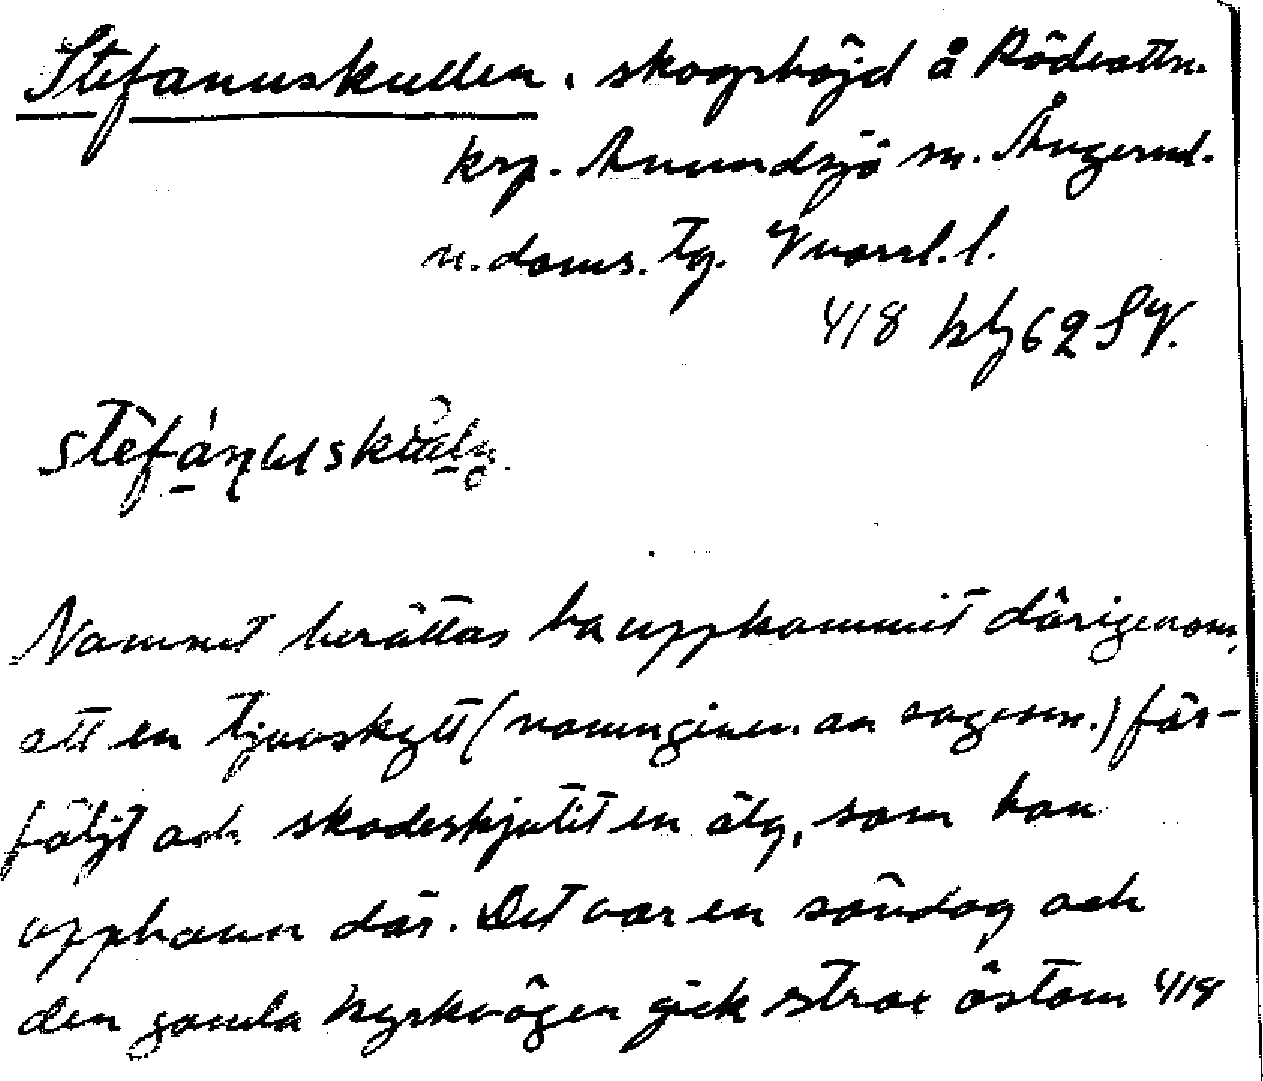 Stefanuskullen. skogshöjd å Rödvattn.
krp. Anundsjö sn. Ångerml.
n. doms. tg. Vnorrl. l.
4/8 kbl 62 SV.
Namnet berättas ha uppkommit därigenom,
att en tjuvskytt (namngiven av sagesm.) för-
följt och skadeskjutit en älg, som han
upphann där. Det var en söndag och
den gamla kyrkvägen gick strax östom 4/8